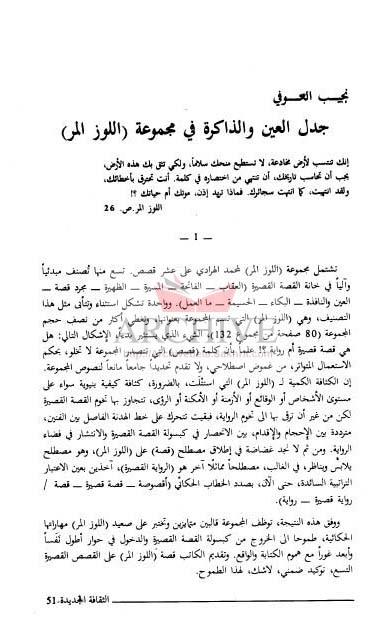 نجيب العوفي
جدل العين والذاكرة في مجموعة (اللوز المر)
إنك تنتسب لأرض مخادعة، لا تستطيع منحك سلاماً، ولكي تثق بك هذه الأرض،
يجب أن تحاسب تاريخك، أن تنتهي من اختصاره في كلمة. أنت تحترق بأخطائك،
ولقد انتهيت، كما انتهت سجائرك. فماذا تريد إذن، موتك أم حياتك ؟!
اللوز المر.ص. 26
— 1 —
تشتمل مجموعة (اللوز المر) لمحمد الهرادي على عشر قصص. تسع منها تُصنف مبدئياً
وآلياً في خانة القصة القصيرة (العقاب ـ الفاتحة ـ السيرة ـ الظهيرة ـ مجرد قصة ـ
العين والنافذة ـ البكاء ـ الحسيمة ـ ما العمل). وواحدة تشكل استثناء وتتأبى مثل هذا
التصنيف، وهي (اللوز المر) التي تسم المجموعة بعنوانها، وتغطي أكثر من نصف حجم
المجموعة (80 صفحة من مجموع 132) الشيء الذي يستثير بدئياً، الإشكال التالي: هل
هي قصة قصيرة أم رواية ؟! علماً بأن كلمة (قصص) التي تتصدر المجموعة لا تخلو، بحكم
الاستعمال المتواتر، من غموض اصطلاحي، ولا تقدم تحديداً جامعاً مانعاً لنصوص المجموعة.
إن الكثافة الكمية لـ (اللوز المر) التي استتلت، بالضرورة، كثافة كيفية بنيوية سواء على
مستوى الأشخاص أو الوقائع أو الأزمنة أو الأمكنة أو الرؤى، تتجاوز بها تخوم القصة القصيرة
لكن من غير أن ترقى بها الى تخوم الرواية، فبقيت تتحرك على خط الهدنة الفاصل بين الفنين،
مترددة بين الإحجام والإقدام، بين الانحصار في كبسولة القصة القصيرة والانتشار في فضاء
الرواية. ومن ثم لا نجد غضاضة في إطلاق مصطلح (قصة) على (اللوز المر)، وهو مصطلح
يلابس ويناظر، في الغالب، مصطلحاً مماثلاً آخر هو (الرواية القصيرة)، آخذين بعين الاعتبار
التراتبية السائدة، حتى الآن، بصدد الخطاب الحكائي (أقصوصة ـ قصة قصيرة ـ قصة /
رواية قصيرة ـ رواية).
ووفق هذه النتيجة، توظف المجموعة قالبين متمايزين وتختبر على صعيد (اللوز المر) مهاراتها
الحكائية، طموحا الى الخروج من كبسولة القصة القصيرة والدخول في حوار أطول نَفَساً
وأبعد غوراً مع هموم الكتابة والواقع. وتقديم الكاتب قصة (اللوز المر) على القصص القصيرة
التسع، توكيد ضمني، لاشك، لهذا الطموح.
الثقافة الجديدة.51
ARCHIVE